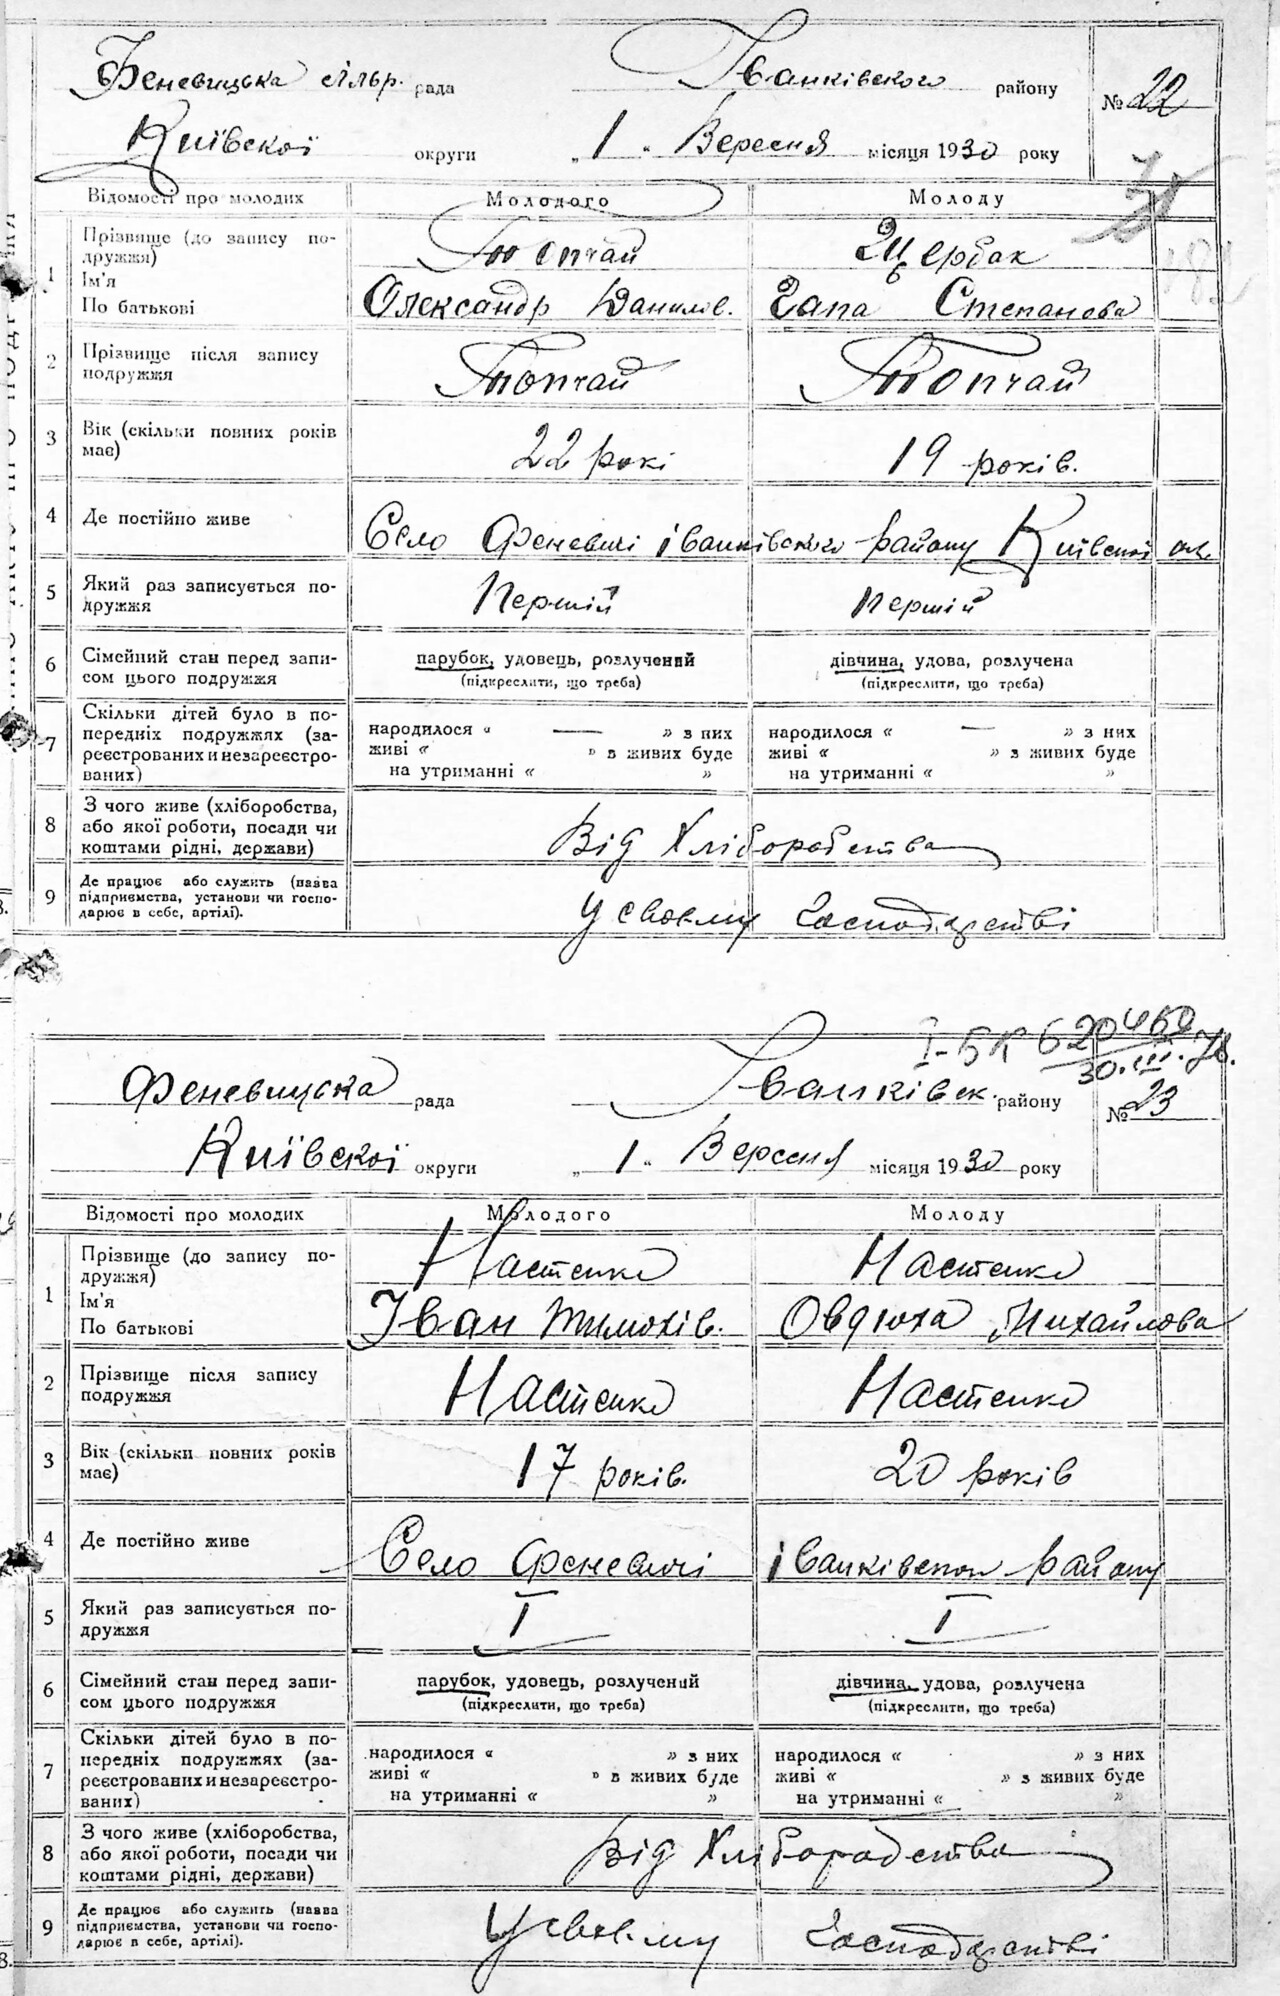 Феневицька сільр. рада Іванківского району № 22
Київскої округи „ 1 " Вересня місяця 1930 року
Відомості про молодих Молодого Молоду
1 Прізвище (до запису по-
дружжя) Топчай Щербак
Ім'я
По батькові Олександр Данилов. Гапа Степанова
2 Прізвище після запису
подружжя Топчай Топчай
3 Вік (скільки повних років
має) 22 рокі 19 років.
4 Де постійно живе Село Феневичі іванківського району Київскої ок.
5 Який раз записується по-
дружжя Першій першій
6 Сімейний стан перед запи-
сом цього подружжя
парубок, удовець, розлучений дівчина, удова, розлучена
(підкреслити, що треба) (підкреслити, що треба)
7 Скільки дітей було в по-
передніх подружжях (за-
реєстрованих и незареєстро-
ваних)
народилося « — » з них народилося « — » з них
живі « » в живих буде живі « » з живих буде
на утриманні « » на утриманні « »
8 З чого живе (хліборобства,
або якої роботи, посади чи
коштами рідні, держави) Від Хліборобства
9 Де працює або служить (назва
підприємства, установи чи госпо-
дарює в себе, артілі). У своєму Господарстві
І-БК 620460
30.III.76.
Феневицька рада Іванківск. району № 23
Київскої округи „ 1 " Вересня місяця 1930 року
Відомості про молодих Молодого Молоду
1 Прізвище (до запису по-
дружжя) Настенко Настенко
Ім'я
По батькові Іван Тимохів. Овдюха Михайлова
2 Прізвище після запису
подружжя Настенко Настенко
3 Вік (скільки повних років
має) 17 років. 20 років
4 Де постійно живе Село Феневичі іванківского району
5 Який раз записується по-
дружжя І І
6 Сімейний стан перед запи-
сом цього подружжя
парубок, удовець, розлучений дівчина, удова, розлучена
(підкреслити, що треба) (підкреслити, що треба)
7 Скільки дітей було в по-
передніх подружжях (за-
реєстрованих и незареєстро-
ваних)
народилося « » з них народилося « » з них
живі « » в живих буде живі « » з живих буде
на утриманні « » на утриманні « »
8 З чого живе (хліборобства,
або якої роботи, посади чи
коштами рідні, держави) Від Хліборобства
9 Де працює або служить (назва
підприємства, установи чи госпо-
дарює в себе, артілі). У своєму Господарстві